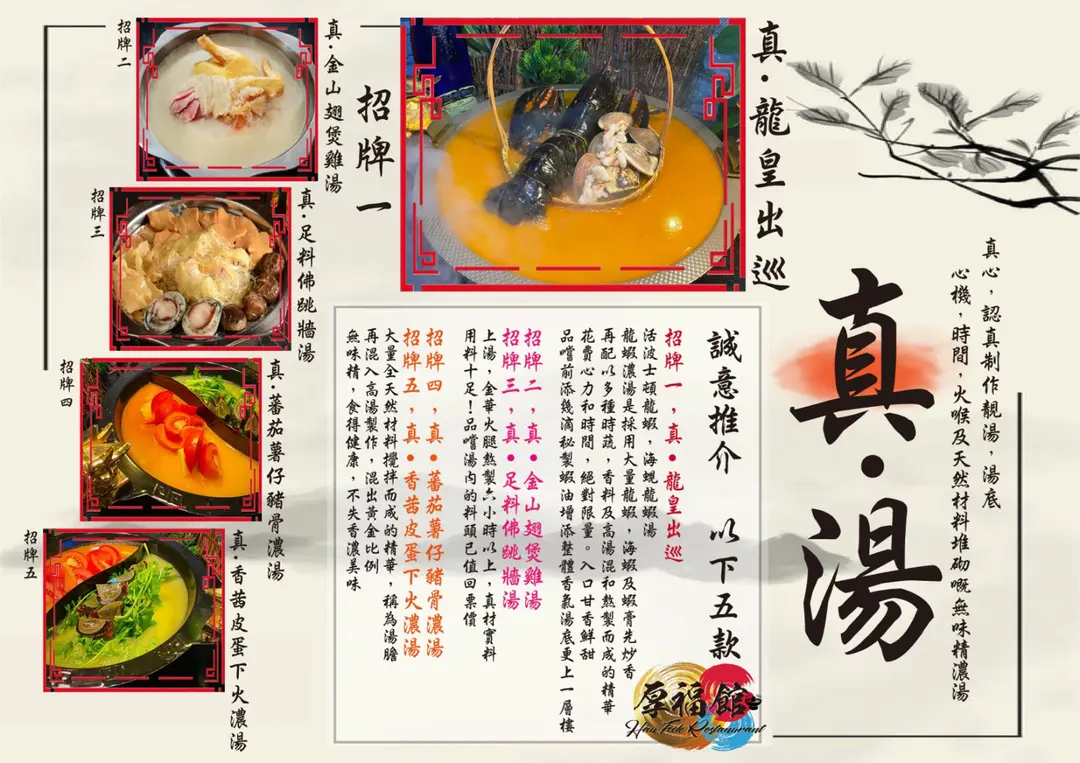 真·湯
真心，認真制作靚湯，湯底
心機，時間，火喉及天然材料堆砌嘅無味精濃湯
真·龍皇出巡
招牌一
真·金山翅煲雞湯
招牌二
真·足料佛跳牆湯
招牌三
真·蕃茄薯仔豬骨濃湯
招牌四
真·香茜皮蛋下火濃湯
招牌五
誠意推介 以下五款
招牌一，真●龍皇出巡
活波士頓龍蝦，海蜆龍蝦湯
龍蝦濃湯是採用大量龍蝦，海蝦及蝦膏先炒香
再配以多種時蔬，香料及高湯混和熬製而成的精華
花費心力和時間，絕對限量。入口甘香鮮甜
品嚐前添幾滴秘製蝦油增添整體香氣湯底更上一層樓
招牌二，真●金山翅煲雞湯
招牌三，真●足料佛跳牆湯
上湯，金華火腿熬製六小時以上，真材實料
用料十足！品嚐湯內的料頭已值回票價
招牌四，真●蕃茄薯仔豬骨濃湯
招牌五，真●香茜皮蛋下火濃湯
大量全天然材料攪拌而成的精華，稱為湯膽
再混入高湯製作，混出黃金比例
無味精，食得健康，不失香濃美味
厚福館
Hau Fook Restaurant